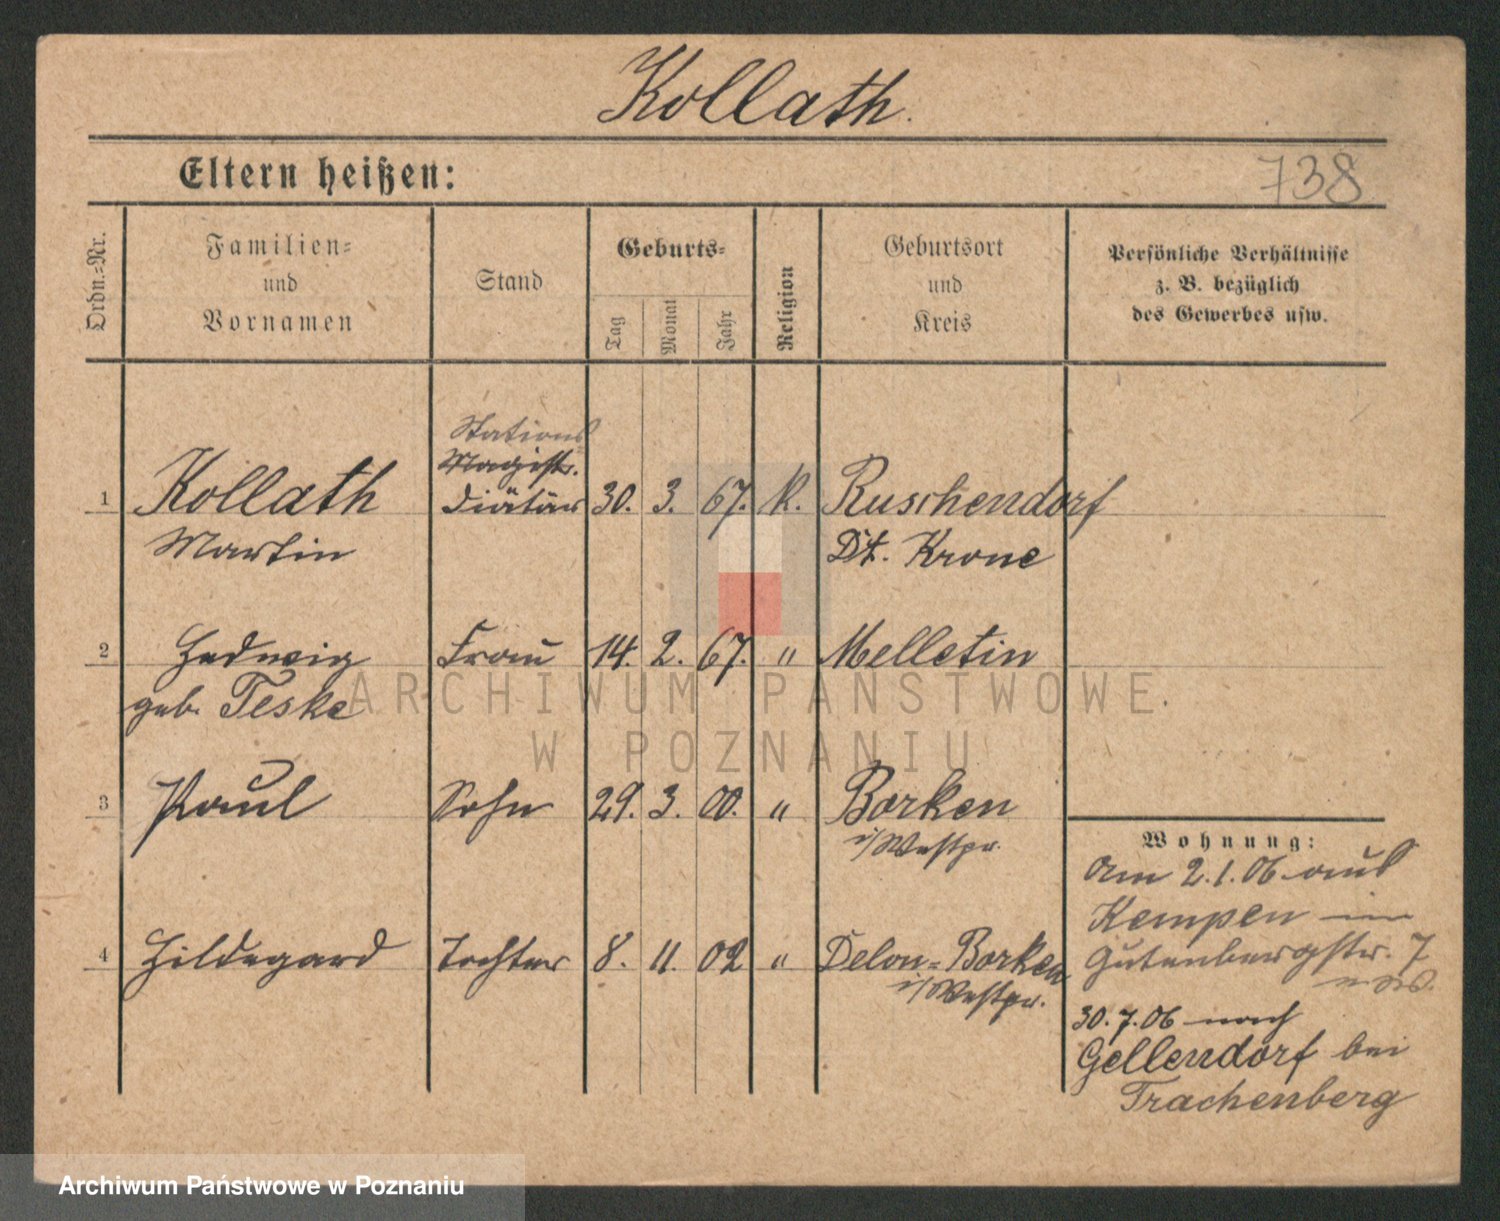 Kollath.
Eltern heißen:
738
Ordn.=Nr.
Familien=
und
Vornamen
Stand
Geburts=
Tag
Monat
Jahr
Religion
Geburtsort
und
Kreis
Persönliche Verhältnisse
z. B. bezüglich
des Gewerbes usw.
Stations
Magistr.
1 Kollath diätar 30. 3. 67. K. Ruschendorf
Martin Dt. Krone
2 Hedwig Frau 14. 2. 67. " Melletin
geb. Teske
ARCHIWUM PAŃSTWOWE
W POZNANIU
3 Paul Sohn 29. 3. 00. " Borken
i/Westpr.
Wohnung:
Am 2.1.06 aus
Kempen in
4 Hildegard Tochter 8. 11. 02 " Delon=Borken
i/Westpr.
Gutenbergstr. 7
30.7.06 nach
Gellendorf bei
Trachenberg
Archiwum Państwowe w Poznaniu